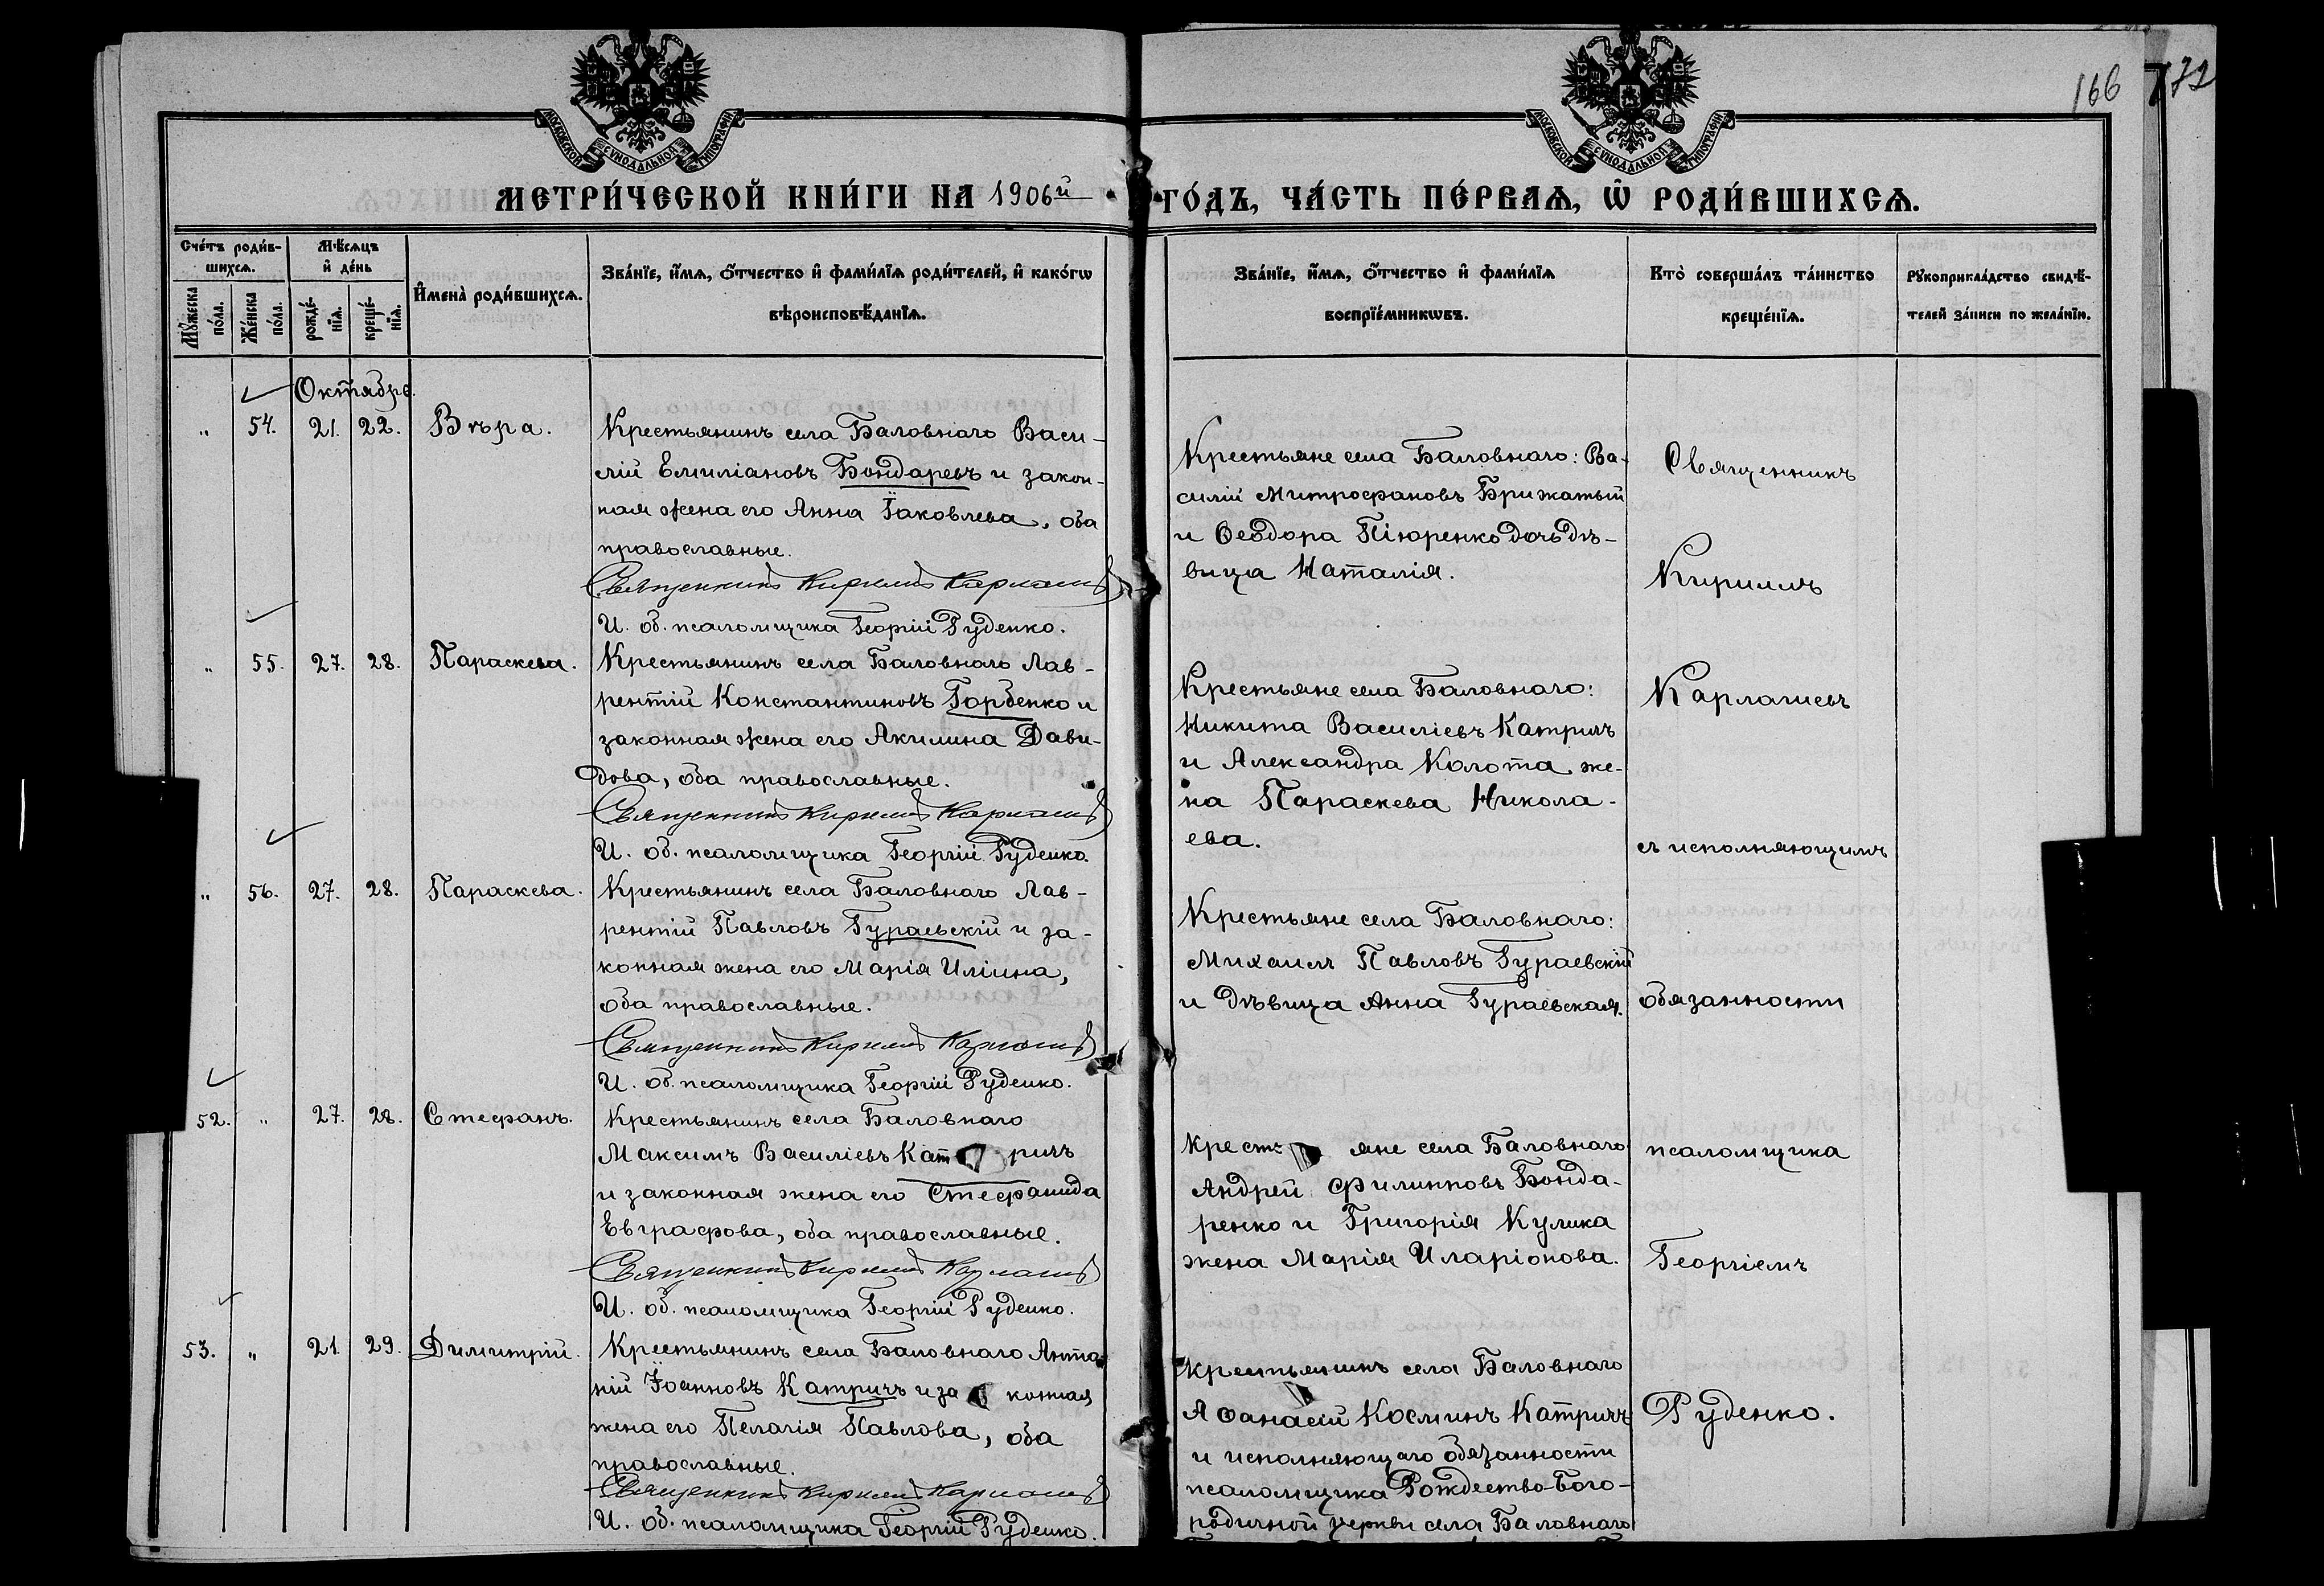 166
172
МОСКОВСКОЙ СѴНОДАЛЬНОЙ ТИПОГРАФІИ
МОСКОВСКОЙ СѴНОДАЛЬНОЙ ТИПОГРАФІИ
МЕТРИ́ЧЕСКОЙ КНИ́ГИ НА 1906й
ГО́ДЪ, ЧА́СТЬ ПЕ́РВАѦ, Ѽ РОДИ́ВШИХСѦ.
Сче́тъ роди́в-
шихсѧ.
Мꙋ́жеска
по́ла.
Же́нска
по́ла.
Мѣ́сѧцъ
и҆ де́нь
рожде́-
нїѧ.
креще́-
нїѧ.
И҆мена̀ роди́вшихсѧ.
Зва́нїе, и҆́мѧ, ѻ҆́тчество и҆ фами́лїѧ роди́телей, и҆ како́гѡ
вѣроисповѣ́данїѧ.
Зва́нїе, и҆́мѧ, ѻ҆́тчество и҆ фами́лїѧ
воспрїе́мникѡвъ.
Кто̀ соверша́лъ та́инство
креще́нїѧ.
Рꙋкоприкла́дство свидѣ́-
телей за́писи по жела́нїю.
Октябрь.
„ 54. 21. 22. Вѣра.
Крестьянинъ села Баловнаго Васи-
лій Емиліановъ Бондаревъ и закон-
ная жена его Анна Іаковлева, оба
православные.
Священникъ Кириллъ
И. об. псаломщика Георгій Руденко.
Крестьяне села Баловнаго: Ва-
силій Митрофановъ Брижатый
и Ѳеодора Пiюренко дочь дѣ-
вица Наталія.
„ 55. 27. 28. Параскева.
Крестьянинъ села Баловнаго Лав-
рентій Константиновъ Горбенко и
законная жена его Акилина Дави-
дова, оба православные.
Священникъ Кириллъ
И. об. псаломщика Георгій Руденко.
Крестьяне села Баловнаго:
Никита Василіевъ Катричъ
и Александра Колота же-
на Параскева Никола-
ева.
„ 56. 27. 28. Параскева.
Крестьянинъ села Баловнаго Лав-
рентій Павловъ Гураевскій и за-
конная жена его Марія Иліина,
оба православные.
Священникъ Кириллъ
И. об. псаломщика Георгій Руденко.
Крестьяне села Баловнаго:
Михаилъ Павловъ Гураевскій
и дѣвица Анна Гураевская.
52. „ 27. 28. Стефанъ.
Крестьянинъ села Баловнаго
Максимъ Василіевъ Катричъ
и законная жена его Стефанида
Евграфова, оба православные.
Священникъ Кириллъ
И. об. псаломщика Георгій Руденко.
Крестьяне села Баловнаго
Андрей Филипповъ Бонда-
ренко и Григорія Кулика
жена Марія Иларіонова.
53. „ 21. 29. Димитрій.
Крестьянинъ села Баловнаго Анто-
ній Іоанновъ Катричъ и законная
жена его Пелагія Павлова, оба
православные.
Священникъ Кириллъ
И. об. псаломщика Георгій Руденко.
Крестьянинъ села Баловнаго
Аѳанасій Косминъ Катричъ
и исполняющаго обязанности
псаломщика Рождество-Бого-
родичной церкви села Баловнаго
Священникъ
Кириллъ
с исполняющимъ
обязанности
псаломщика
Георгіемъ
Руденко.